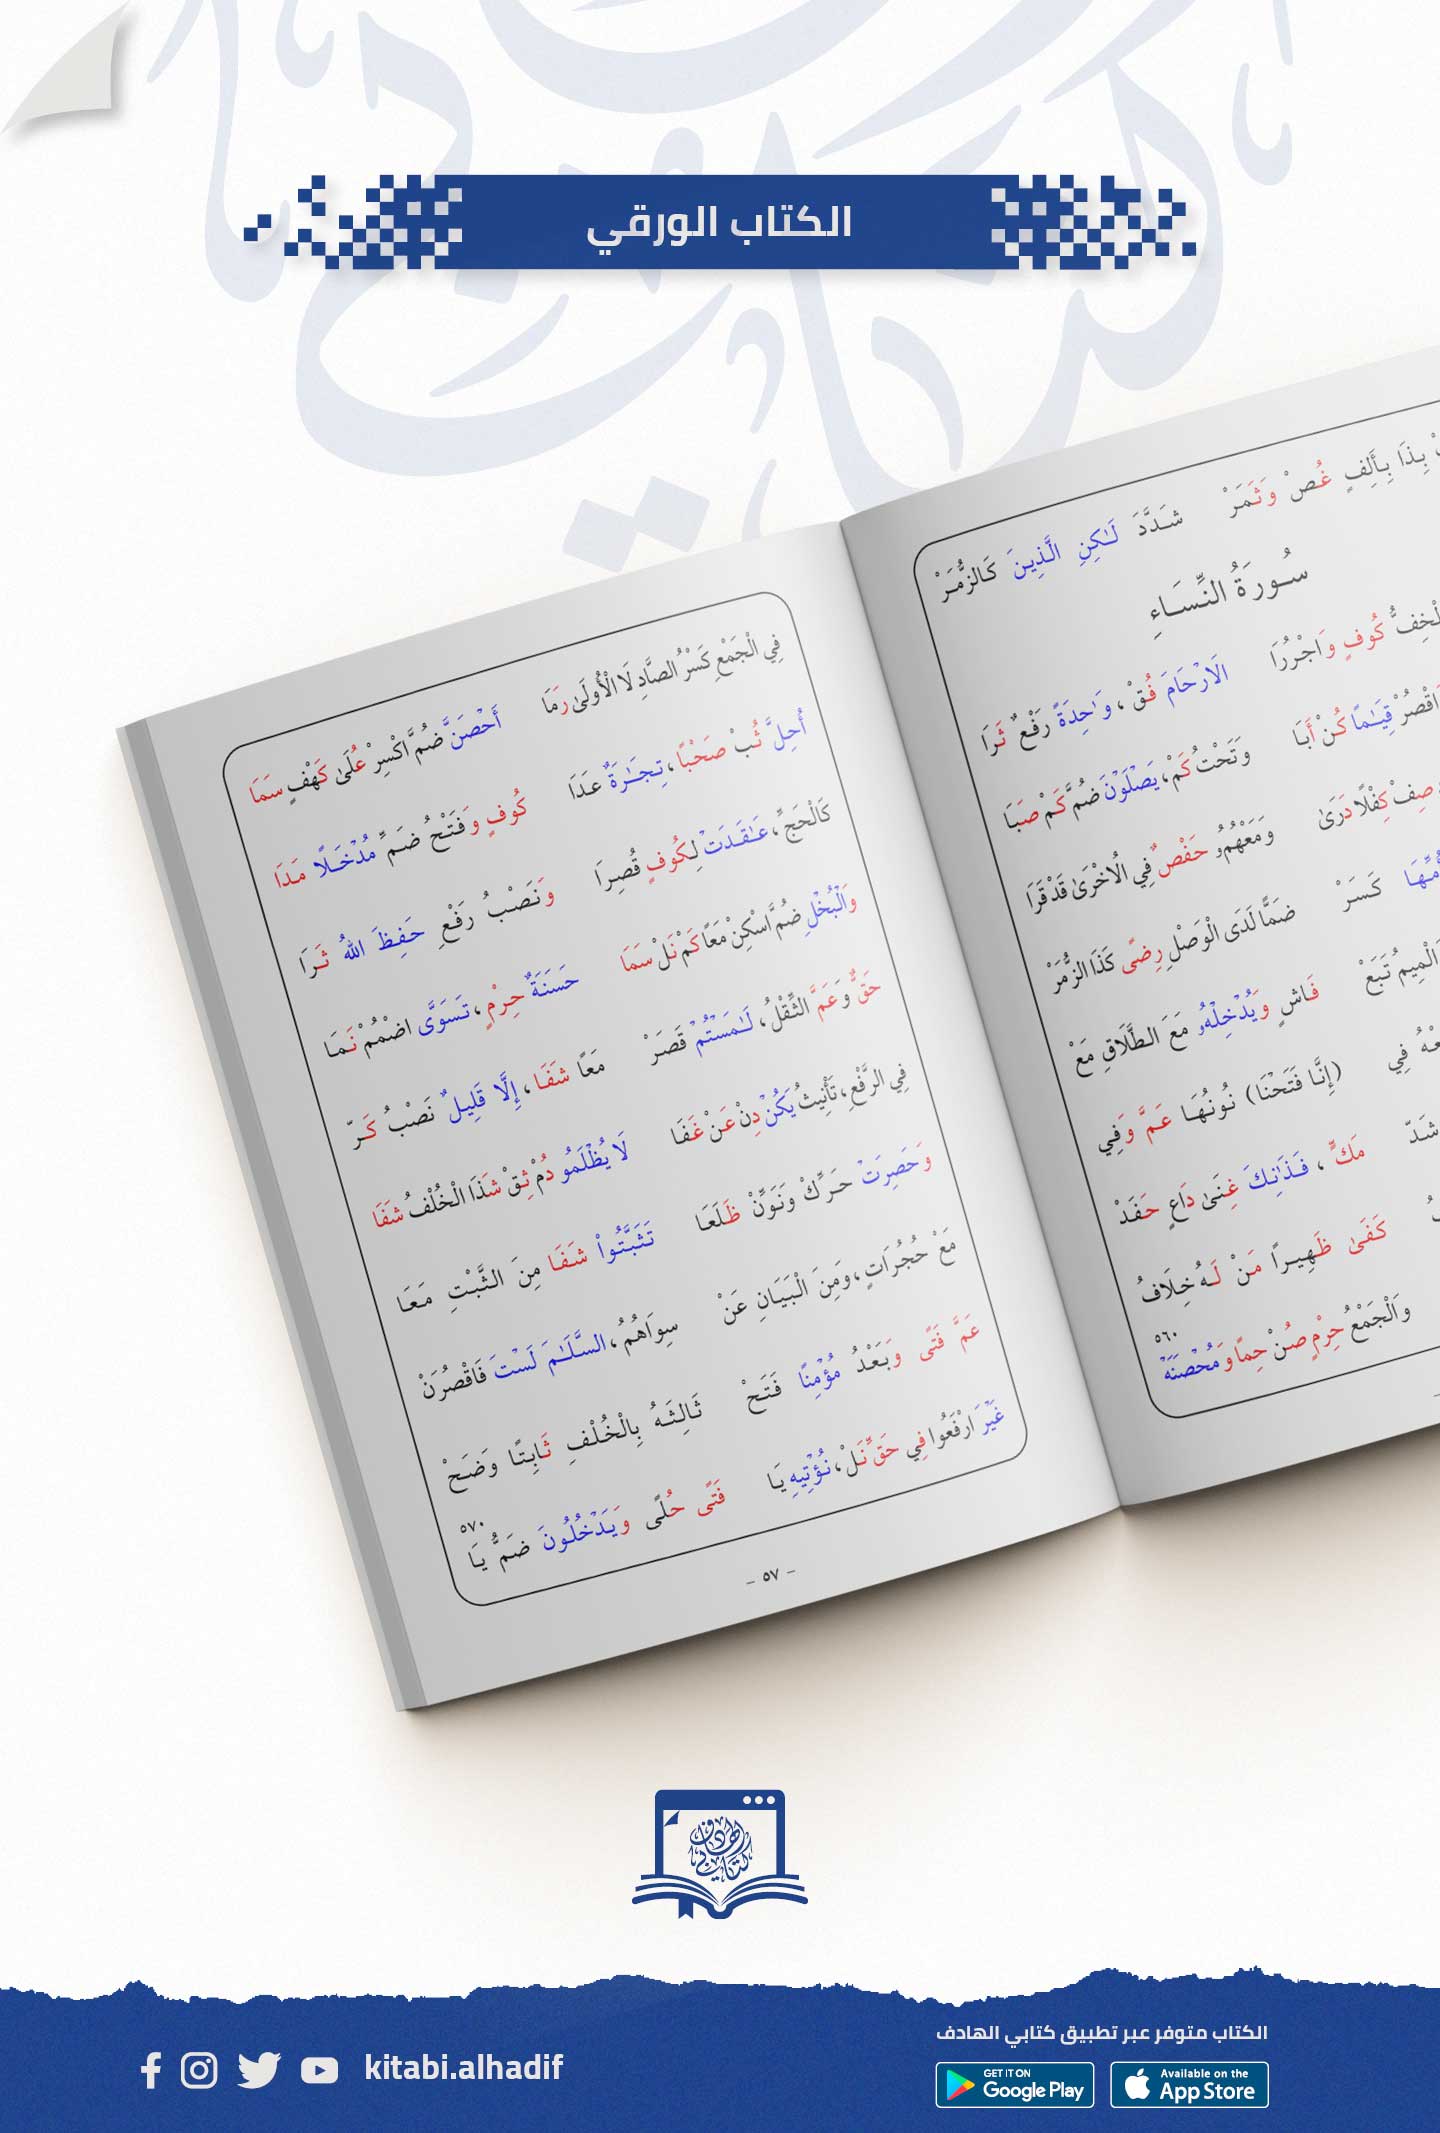 الكتاب الورقي
بِذَا بِأَلِفٍ غُصْ وَثَمَرْ شَدَّدَ لَٰكِنِ الَّذِينَ كَالزُّمَرْ
سُورَةُ النِّسَاءِ
الْخِفُّ كُوفٍ وَاجْرُرَا الَارْحَامَ فُقْ، وَٰحِدَةٌ رَفْعٌ ثَرَا
وَاقْصُرْ قِيَٰمًا كُنْ أَبَا وَتَحْتُ كَمْ، يَصْلَوْنَ ضُمَّ كَمْ صَبَا
صِفْ كِفْلًا دَرَىٰ وَمَعْهُمُو حَفْصٌ فِي الُاخْرَىٰ قَدْ قَرَا
كَسَرْ ضَمًّا لَدَى الْوَصْلِ رِضًى كَذَا الزُّمَرْ
وَالْمِيمُ تَبَعْ فَاشٍ وَيُدْخِلْهُو مَعَ الطَّلَاقِ مَعْ
فِي (إِنَّا فَتَحْنَا) نُونُهَا عَمَّ وَفِي
شَدّ مَكٍّ، فَذَٰنِكَ غِنَىٰ دَاعٍ حَفَدْ
كَفَىٰ ظَهِيرًا مَنْ لَهُ خِلَافُ
وَالْجَمْعُ حِرْمٍ صُنْ حِمًا وَمُحْصَنَهْ ٥٦٠
فِي الْجَمْعِ كَسْرُ الصَّادِ لَا الْأُولَىٰ رَمَا أَحْصَنَّ ضُمَّ اكْسِرْ عُلَىٰ كَهْفٍ سَمَا
أُحِلَّ ثُبْ صَحْبًا، تِجَٰرَةٌ عَدَا كُوفٍ وَفَتْحُ ضَمِّ مُدْخَلًا مَدَا
كَالْحَجِّ، عَٰقَدَتْ لِكُوفٍ قُصِرَا وَنَصْبُ رَفْعِ حَفِظَ اللهُ ثَرَا
وَالْبُخْلِ ضُمَّ اسْكِنْ مَعًا كَمْ نَلْ سَمَا حَسَنَةٌ حِرْمٍ، تَسَوَّى اضْمُمْ نَمَا
حَقٌّ وَعَمَّ الثِّقْلُ، لَٰمَسْتُمْ قَصَرْ مَعًا شَفَا، إِلَّا قَلِيلٌ نَصْبُ كَرّ
فِي الرَّفْعِ، تَأْنِيثُ يَكُنْ دِنْ عَنْ غَفَا لَا يُظْلَمُو دُمْ ثِقْ شَذَا الْخُلْفُ شَفَا
وَحَصِرَتْ حَرِّكْ وَنَوِّنْ ظَلَعَا تَثَبَّتُوا شَفَا مِنَ الثَّبْتِ مَعَا
مَعْ حُجُرَاتٍ، وَمِنَ الْبَيَانِ عَنْ سِوَاهُمُ، السَّلَٰمَ لَسْتَ فَاقْصُرَنْ
عَمَّ فَتًى وَبَعْدُ مُؤْمِنًا فَتَحْ ثَالِثَهُ بِالْخُلْفِ ثَابِتًا وَضَحْ
غَيْرَ ارْفَعُوا فِي حَقِّ نَلْ، نُؤْتِيهِ يَا فَتًى حُلًى وَيَدْخُلُونَ ضَمُّ يَا ٥٧٠
- ٥٧ -
كتابي الهادف
الكتاب متوفر عبر تطبيق كتابي الهادف
kitabi.alhadif
GET IT ON Google Play
Available on the App Store